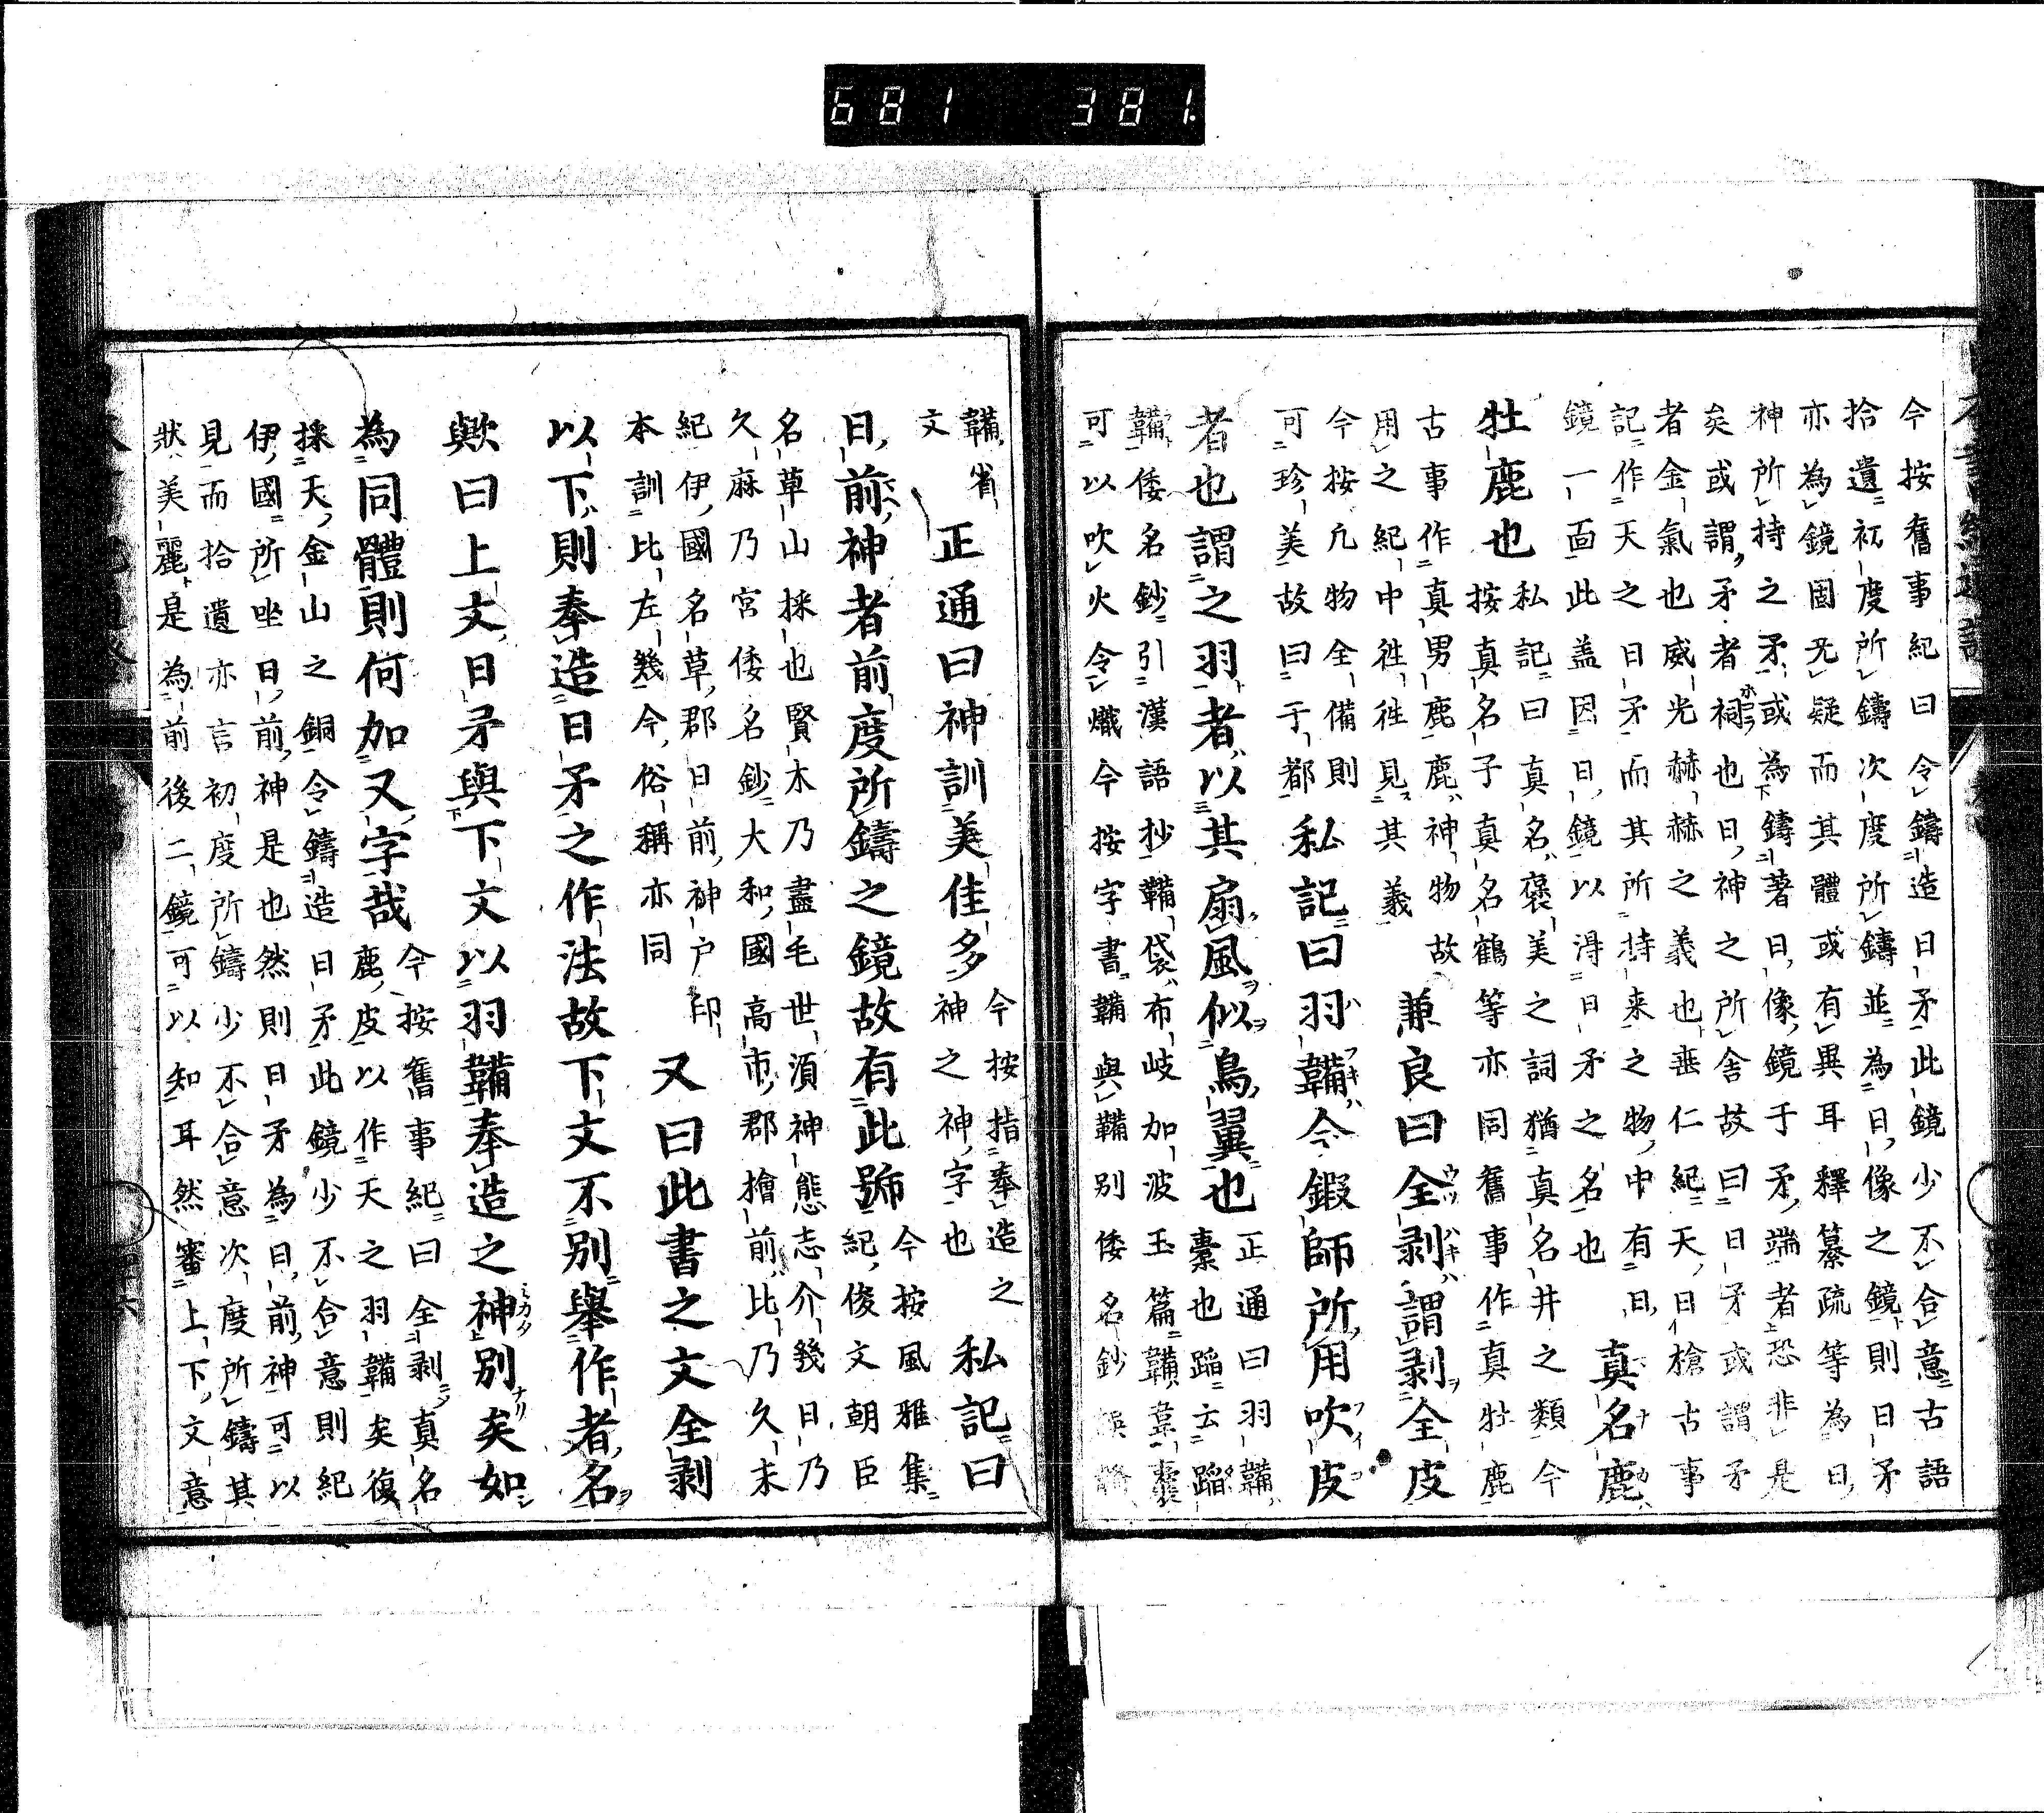 681 381.
今按舊事紀曰令鑄造日矛此鏡少不合意古語
拾遺初度所鑄次度所鑄並為日像之鏡則日矛
亦為鏡固无疑而其體或有異耳釋纂疏等為日
神所持之矛或為鑄著日像鏡于矛端者恐非是
矣或謂矛者祠也日神之所舍故曰日矛或謂矛
者金氣也威光赫赫之義也垂仁紀天日槍古事
記作天之日矛而其所持来之物中有日
鏡一面此盖因日鏡以得日矛之名也
真名鹿
牡鹿也
私記曰真名褒美之詞猶真名井之類今
按真名子真名鶴等亦同舊事作真牡鹿
古事作真男鹿鹿神物故
用之紀中徃徃見其義
兼良曰全剥謂剥全皮
今按凡物全備則
可珍美故曰于都
私記曰羽鞴今鍜師所用吹皮
者也謂之羽者以其扇風似鳥翼也
正通曰羽鞴
橐也蹈云蹈
鞴倭名鈔引漢語抄鞴袋布岐加波玉篇鞴韋橐
可以吹火令熾今按字書鞴與鞴別倭名鈔
鞴省
文
正通曰神訓美佳多
今按指奉造之
神之神字也
私記曰
日前神者前度所鑄之鏡故有此號
今按風雅集
紀俊文朝臣
名草山採也賢木乃盡毛世湏神態志介幾日乃
久麻乃宮倭名鈔大和國高市郡檜前比乃久末
紀伊國名草郡日前神户印
本訓比左幾今俗稱亦同
又曰此書之文全剥
以下則奉造日矛之作法故下文不別舉作者名
歟曰上文日矛與下文以羽鞴奉造之神別矣如
為同體則何加又字哉
今按舊事紀曰全剥真名
鹿皮以作天之羽鞴矣復
採天金山之銅令鑄造日矛此鏡少不合意則紀
伊國所坐日前神是也然則日矛為日前神可以
見而拾遺亦言初度所鑄少不合意次度所鑄其
狀美麗是為前後二鏡可以知耳然審上下文意